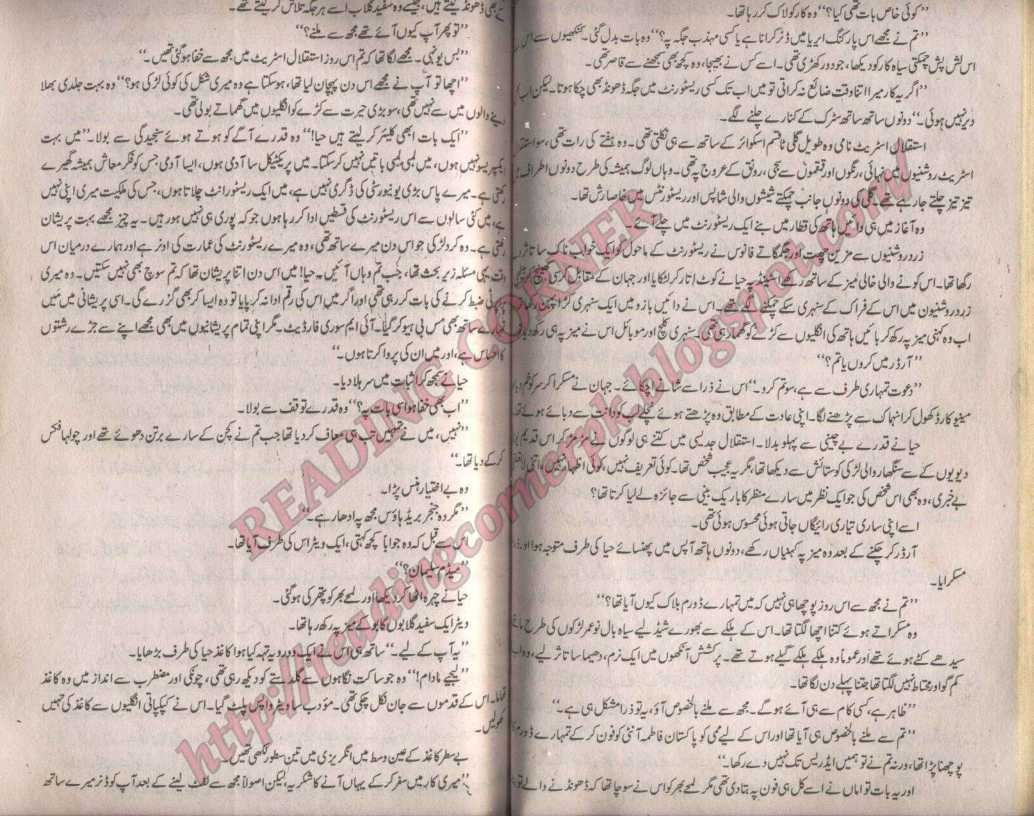 ”کوئی خاص بات تھی کیا؟“ وہ کار کو لاک کر رہا تھا۔
”تم نے مجھے اس پارکنگ ایریا میں ڈنر کرانا ہے یا کسی مہذب جگہ پہ؟“ وہ بات بدل گئی۔ کنکھیوں سے اس
اس لش پش چمکتی سیاہ کار کو دیکھا، جو دور کھڑی تھی۔ اسے کس نے بھیجا، وہ کچھ بھی سمجھنے سے قاصر تھی۔
”اگر یہ کار میرا اتنا وقت ضائع نہ کراتی تو میں اب تک کسی ریسٹورنٹ میں جگہ ڈھونڈ بھی چکا ہوتا۔ لیکن اب
دیر نہیں ہوئی۔“ دونوں ساتھ ساتھ سڑک کے کنارے چلنے لگے۔
استقلال اسٹریٹ نامی وہ طویل گلی تاقسم اسکوائر کے ساتھ سے ہی نکلتی تھی۔ وہ ہفتے کی رات تھی، سو استقلال
اسٹریٹ روشنیوں میں نہائی، رنگوں اور قمقموں سے سجی، رونق کے عروج پہ تھی۔ وہاں لوگ ہمیشہ کی طرح دونوں اطراف میں
تیز تیز چلتے جا رہے تھے۔ گلی کی دونوں جانب چمکتے شیشوں والی شاپس اور ریسٹورنٹس میں خاصا رش تھا۔
وہ آغاز میں ہی دائیں ہاتھ کی قطار میں بنے ایک ریسٹورنٹ میں چلے آئے۔
زرد روشنیوں سے مزین چھت اور جگمگاتے فانوس نے ریسٹورنٹ کے ماحول کو ایک خواب ناک سا تاثر
رکھا تھا۔ اس کونے والی خالی میز کے ساتھ رکھے حیا نے کوٹ اتار کر لٹکایا اور جہان کے مقابل کرسی
زرد روشنیوں میں اس کے فراک کے سنہری سکے چمکنے لگے تھے۔ اس نے دائیں بازو میں ایک سنہری کڑا پہن
اب وہ کہنی میز پہ رکھ کر بائیں ہاتھ کی انگلیوں سے کڑے کو گھما رہی تھی۔ سنہری کلچ اور موبائل اس نے میز پہ ہی رکھ دیا
”آرڈر میں کروں یا تم؟“
”دعوت تمہاری طرف سے ہے، سو تم کرو۔“ اس نے ذرا سے شانے اچکائے۔ جہان نے مسکرا کر سر کو خم دیا
مینیو کارڈ کھول کر انہماک سے پڑھنے لگا۔ اپنی عادت کے مطابق وہ پڑھتے ہوئے نچلے لب کو دانت سے دبائے ہوئے تھا
حیا نے قدرے بے چینی سے پہلو بدلا۔ استقلال جدیسی میں کتنے ہی لوگوں نے مڑ مڑ کر اس قدیم یو
دیویوں کے سے سنگھار والی لڑکی کو ستائش سے دیکھا تھا، مگر یہ عجیب شخص تھا۔ کوئی تعریف نہیں، کوئی اظہار نہیں، اتنی لا
بے خبری، وہ بھی اس شخص کی جو ایک نظر میں سارے منظر کا باریک بینی سے جائزہ لے لیا کرتا تھا؟
اسے اپنی ساری تیاری رائیگاں جاتی ہوئی محسوس ہوئی تھی۔
آرڈر کر چکنے کے بعد وہ میز پہ کہنیاں رکھے، دونوں ہاتھ آپس میں پھنسائے حیا کی طرف متوجہ ہوا اور ذرا
مسکرایا۔
”تم نے مجھ سے اس روز پوچھا ہی نہیں کہ میں تمہارے ڈورم بلاک کیوں آیا تھا؟“
وہ مسکراتے ہوئے کتنا اچھا لگتا تھا۔ اس کے ہلکے سے بھورے شیڈ لیے سیاہ بال نو عمر لڑکوں کی طرح ماتھے
سیدھے کٹے ہوئے تھے اور عموماً وہ ہلکے ہلکے گیلے ہوتے تھے۔ پرکشش آنکھوں میں ایک نرم، دھیما سا تاثر لیے، وہ اب
کم گو اور محتاط نہیں لگتا تھا جتنا پہلے دن لگا تھا۔
”ظاہر ہے، کسی کام سے ہی آئے ہو گے۔ مجھ سے ملنے بالخصوص آؤ، یہ تو ذرا مشکل ہی ہے۔“
”تم سے ملنے بالخصوص ہی آیا تھا اور اس کے لیے ممی کو پاکستان فاطمہ آنٹی کو فون کر کے تمہارے ڈورم
پوچھنا پڑا تھا، ورنہ تم نے تو ہمیں ایڈریس تک نہیں دے رکھا۔“
اور یہ بات تو اماں نے اسے کل ہی فون پہ بتا دی تھی مگر لمحے بھر کو اس نے سوچا تھا کہ ڈھونڈنے والے تو
بھی ڈھونڈ لیتے ہیں، جیسے وہ سفید گلاب اسے ہر جگہ تلاش کر لیتے تھے۔
”تو پھر آپ کیوں آئے تھے مجھ سے ملنے؟“
”بس یونہی۔ مجھے لگا تھا کہ تم اس روز استقلال اسٹریٹ میں مجھ سے خفا ہو گئی تھیں۔“
”اچھا تو آپ نے مجھے اس دن پہچان لیا تھا، ہو سکتا ہے وہ میری شکل کی کوئی لڑکی ہو؟“ وہ بہت جلدی بھلا
دینے والوں میں سے نہیں تھی، سو بڑی حیرت سے کڑے کو انگلیوں میں گھماتے بولی تھی۔
”ایک بات ابھی کلیئر کر لیتے ہیں حیا!“ وہ قدرے آگے کو ہوتے ہوئے سنجیدگی سے بولا۔ ”میں بہت
ایکسپریسو نہیں ہوں، میں لمبی لمبی باتیں نہیں کر سکتا۔ میں پریکٹیکل سا آدمی ہوں، ایسا آدمی جس کو فکر معاش ہمیشہ گھیرے
رکھتی ہے۔ میرے پاس بڑی یونیورسٹی کی ڈگری نہیں ہے، میں ایک ریسٹورانٹ چلاتا ہوں، جس کی ملکیت میری اپنی نہیں
ہے، میں کئی سالوں سے اس ریسٹورنٹ کی قسطیں ادا کر رہا ہوں جو کہ پوری ہی نہیں ہو رہیں۔ یہ چیز مجھے بہت پریشان
رکھتی ہے۔ وہ کرد لڑکی جو اس دن میرے ساتھ تھی، وہ میرے ریسٹورنٹ کی عمارت کی اونر ہے اور ہمارے درمیان اس
وقت یہی مسئلہ زیر بحث تھا، جب تم وہاں آئیں۔ حیا! میں اس دن اتنا پریشان تھا کہ تم سوچ بھی نہیں سکتیں۔ وہ میری
ضبط کرنے کی بات کر رہی تھی اور اگر میں اس کی رقم ادا نہ کر پایا تو وہ ایسا کر بھی گزرے گی۔ اسی پریشانی میں میں
تمہارے ساتھ بھی مس بی ہیو کر گیا۔ آئی ایم سوری فار دیٹ۔ مگر اپنی تمام پریشانیوں میں بھی مجھے اپنے سے جڑے رشتوں
کا احساس ہے، اور میں ان کی پروا کرتا ہوں۔“
حیا نے سمجھ کر اثبات میں سر ہلا دیا۔
”اب بھی خفا ہو اسی بات پہ؟“ وہ قدرے توقف سے بولا۔
”نہیں، میں نے تمہیں تب ہی معاف کر دیا تھا جب تم نے کچن کے سارے برتن دھوئے تھے اور چولہا فکس
کر کے دیا تھا۔“
وہ بے اختیار ہنس پڑا۔
”مگر وہ جنجر بریڈ ہاؤس مجھ پہ ادھار ہے۔“
اس سے قبل کہ وہ جواباً کچھ کہتی، ایک ویٹر اس کی طرف آیا تھا۔
”میڈم سلیمان؟“
حیا نے چہرہ اٹھا کر دیکھا اور لمحے بھر کو پتھر ہو گئی۔
ویٹر ایک سفید گلابوں کا بوکے میز پہ رکھ رہا تھا۔
”یہ آپ کے لیے۔“ ساتھ ہی اس نے ایک دوہرا تہہ کیا ہوا کاغذ حیا کی طرف بڑھایا۔
”لیجئے مادام!“ وہ جو ساکت نگاہوں سے گلدستے کو دیکھ رہی تھی، چونکی اور مضطرب سے انداز میں وہ کاغذ
تھاما۔ اس کے قدموں سے جان نکل چکی تھی۔ مؤدب سا ویٹر واپس پلٹ گیا۔ اس نے کپکپاتی انگلیوں سے کاغذ کی تہیں
کھولیں۔
بے سطر کاغذ کے عین وسط میں انگریزی میں تین سطور لکھی تھیں۔
”میری کار میں سفر کر کے یہاں آنے کا شکریہ، لیکن اصولاً مجھ سے لفٹ لینے کے بعد آپ کو ڈنر میرے ساتھ
READING CORNER
http://readingcornerpk.blogspot.com/